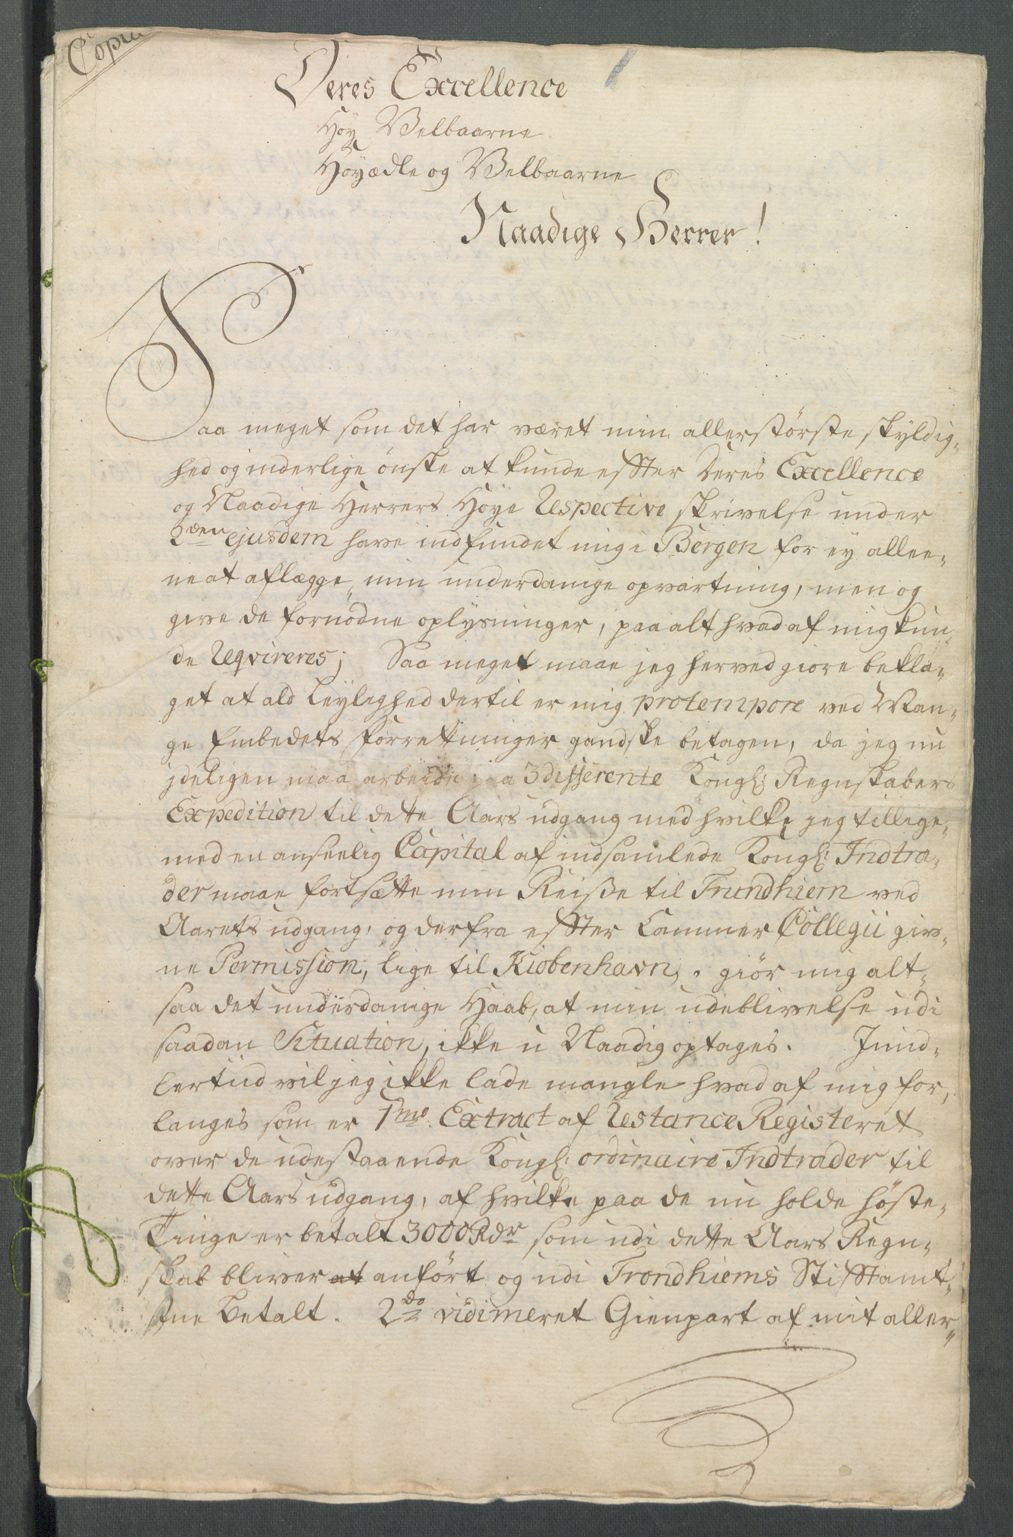 Copia
Deres Excellence
Høy Velbaarne
Høyædle og Velbaarne
Naadige Herrer!
Saa meget som det har været min allerstørste skyldig-
hed og inderlige ønske at kunde effter Deres Excellence
og Naadige Herrers Høye Respective skrivelse under
2den ejusdem have indfundet mig i Bergen for ey allee-
ne at aflægge min underdanige opvartning, men og
give de fornødne oplysninger, paa alt hvad af mig kun-
de Reqvireres; Saa meget maae jeg herved giøre bekla-
get at ald Leylighed dertil er mig protempore ved Man-
ge Embedets Forretninger gandske betagen, da jeg nu
jdeligen maa arbeide paa 3 differente Kongl: Regnskabers
Expedition til dette Aars udgang med hvilke jeg tillige-
med en anseelig Capital af indsamlede Kongl: Indtra-
der maae fortsætte min Reise til Trundhiem ved
Aarets udgang, og derfra effter Cammer Collegii giv-
ne Permission, lige til Kiøbenhavn, giør mig alt-
saa det underdanige Haab, at min udeblivelse udi
saadan Situation, ikke u Naadig optages. Imid-
lertiid vil jeg ikke lade mangle hvad af mig for-
langes som er 1mo. Extract af Restance Registeret
over de udestaaende Kongl: ordinaire Indtrader til
dette Aars udgang, af hvilke paa de nu holde høste-
Tinge er betalt 3000 Rdr som udi dette Aars Regn-
skab bliver at anført og udi Trondhiems Stifftamt-
stue Betalt. 2do vidimeret Gienpart af mit aller-